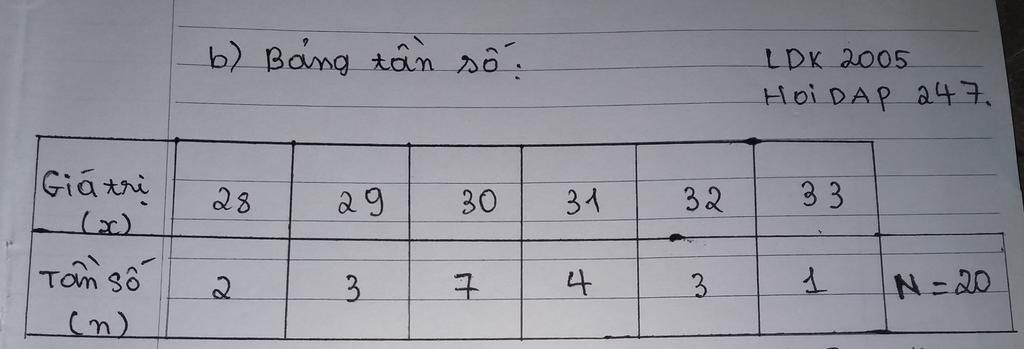 b) Bảng tần số:
LDK 2005
HOiDAP 247.
Giá trị (x) 28 29 30 31 32 33
Tần số (n) 2 3 7 4 3 1 N = 20